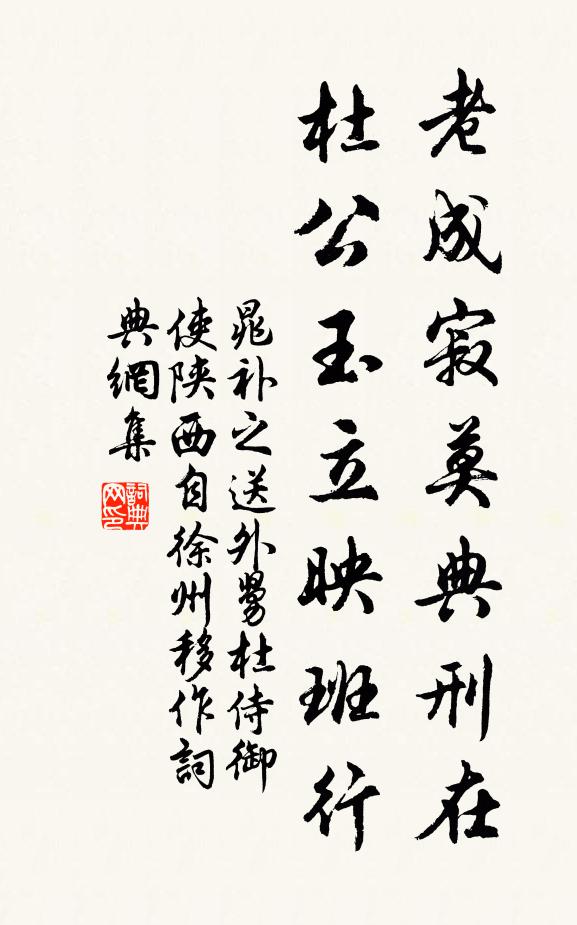 老成寂莫典刑在
杜公玉立映班行
晁补之送外舅杜侍御
使陕西自徐州移作詞
典網集
詞典
网印